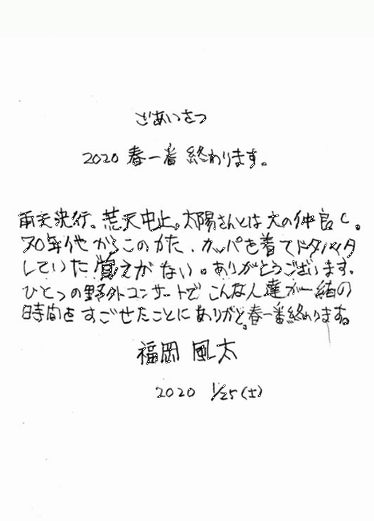 ごあいさつ
2020 春一番 終わります。
雨天決行。荒天中止。太陽さんとは大の仲良し。
70年代からこのかた、カッパを着てドタバタ
していた覚えがない。ありがとうございます。
ひとつの野外コンサートで こんな人達が一緒の
時間を すごせたことに ありがと。春一番終わります。
福岡 風太
2020 1/25(土)